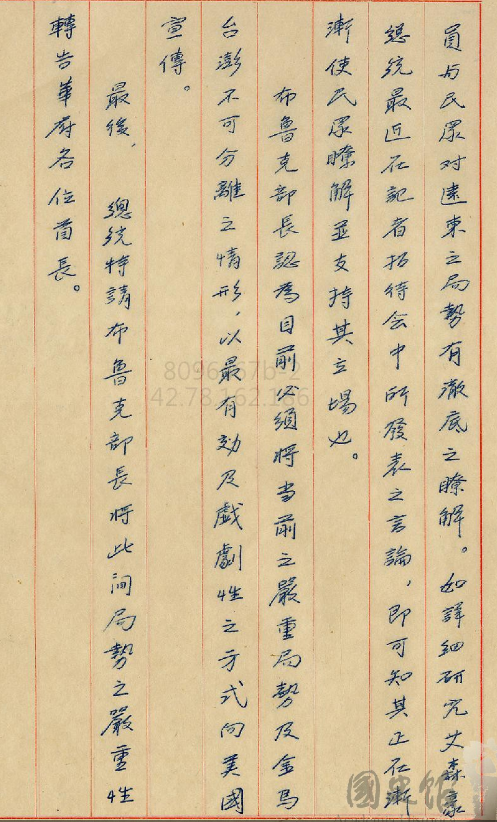 員与民眾对遠東之局勢有澈底之瞭解。如詳細研究艾森豪
總統最近在記者招待会中所發表之言論，即可知其正在漸
漸使民眾瞭解並支持其立場也。
布魯克部長認為目前必須将当前之嚴重局勢及金馬
台澎不可分離之情形，以最有効及戲劇性之方式向美國
宣傳。
最後，總統特請布魯克部長将此间局勢之嚴重性
轉告華府各位首長。
國史館